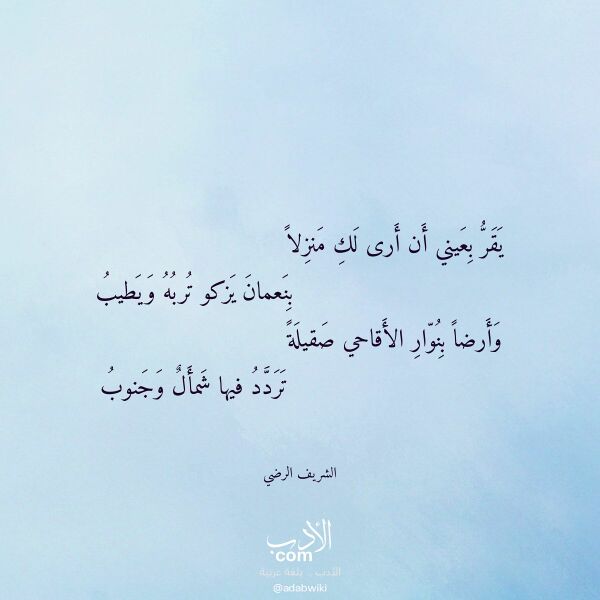 يَقَرُّ بِعَيني أَن أَرى لَكِ مَنزِلاً
بِنَعمانَ يَزكو تُربُهُ وَيَطيبُ
وَأَرضاً بِنُوّارِ الأَقاحي صَقيلَةً
تَرَدَّدُ فيها شَمأَلٌ وَجَنوبُ
الشريف الرضي
الأدب
com
الأدب .. بلغة عربية
@adabwiki